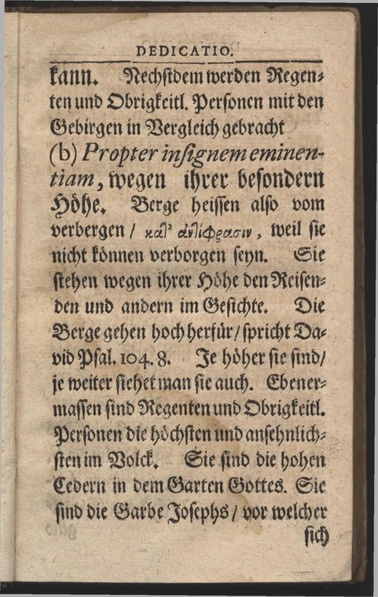 DEDICATIO.
kann. Nechstdem werden Regen-
ten und Obrigkeitl. Personen mit den
Gebirgen in Vergleich gebracht
(b) Propter insignem eminen-
tiam, wegen ihrer besondern
Höhe. Berge heissen also vom
verbergen / κατ' ἀντίφρασιν, weil sie
nicht können verborgen seyn. Sie
stehen wegen ihrer Höhe den Reisen-
den und andern im Gesichte. Die
Berge gehen hoch herfür / spricht Da-
vid Psal. 104. 8. Je höher sie sind /
je weiter siehet man sie auch. Ebener-
massen sind Regenten und Obrigkeitl.
Personen die höchsten und ansehnlich-
sten im Volck. Sie sind die hohen
Cedern in dem Garten Gottes. Sie
sind die Garbe Josephs / vor welcher
sich